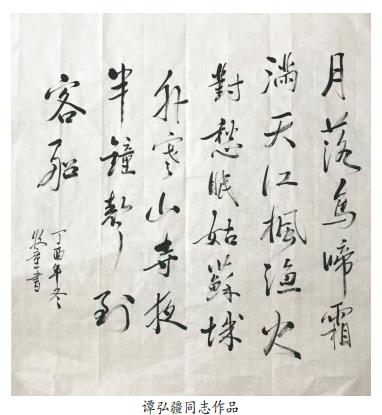 月落烏啼霜
滿天江楓漁火
對愁眠姑蘇城
外寒山寺夜
半鐘聲到
客船
丁酉年冬
牧童書
谭弘疆同志作品